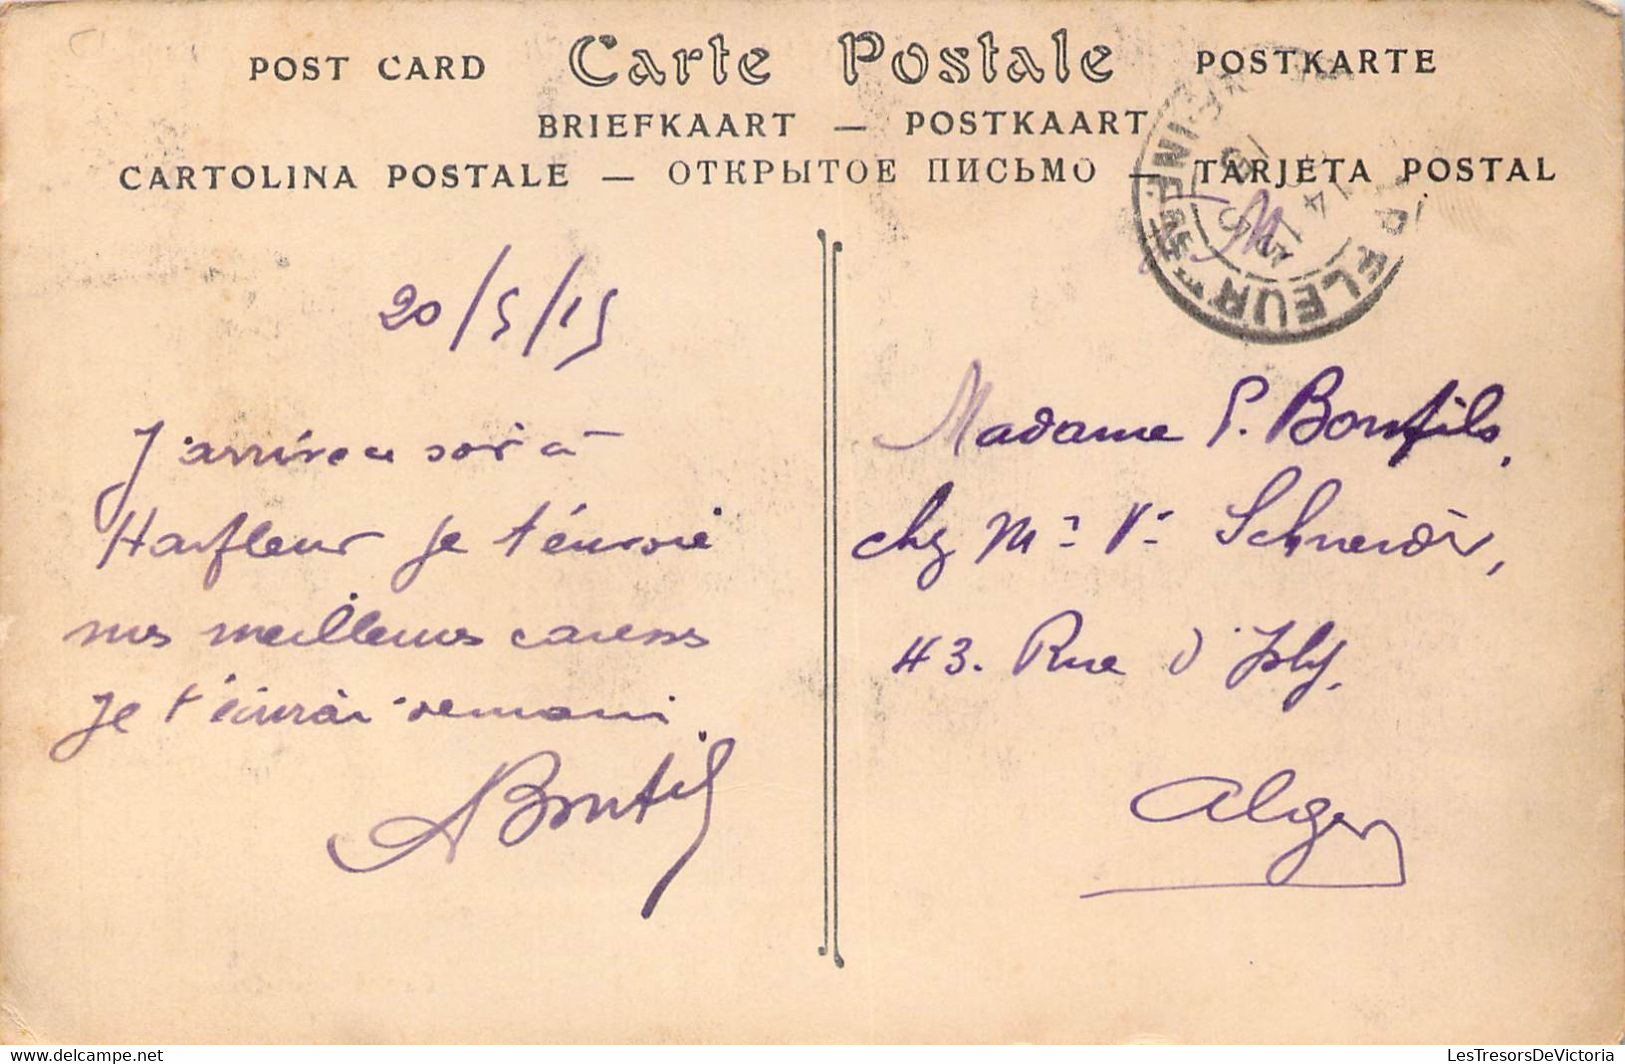 POST CARD Carte Postale POSTKARTE
BRIEFKAART — POSTKAART
CARTOLINA POSTALE — ОТКРЫТОЕ ПИСЬМО — TARJETA POSTAL
20/5/15
J'arrive ce soir à
Harfleur je t'envoie
mes meilleures caresses
je t'écrirai demain
ABonfils
HARFLEUR
Madame P. Bonfils,
chez Me Ve Schneider,
43. Rue d'Isly.
Alger
LesTresorsDeVictoria - www.delcampe.net
LesTresorsDeVictoria